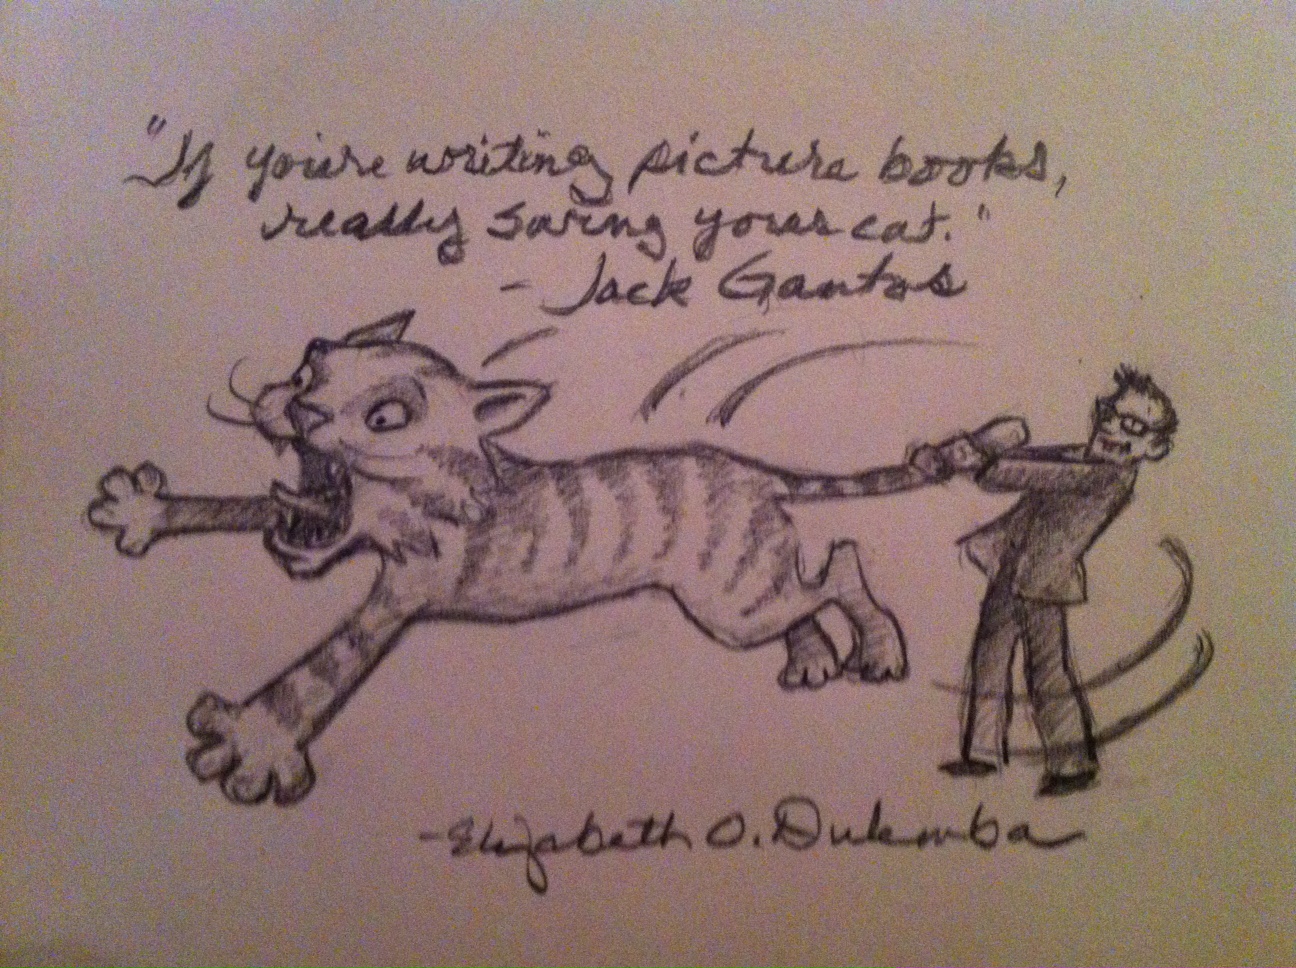 "If you're writing picture books,
really swing your cat."
- Jack Gantos
- Elizabeth O. Dulemba